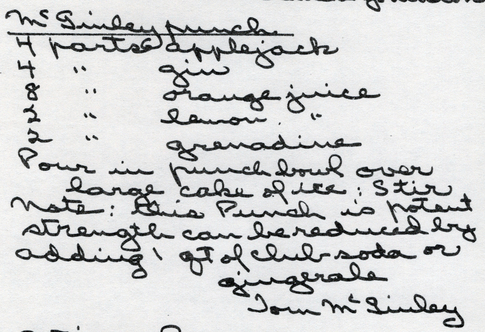 McGinley punch
4 parts applejack
4 " gin
8 " orange juice
2 " lemon "
2 " grenadine
Pour in punch bowl over
large cake of ice: Stir
Note: this Punch is potent
strength can be reduced by
adding 1 qt of club-soda or
gingerale
Tom McGinley